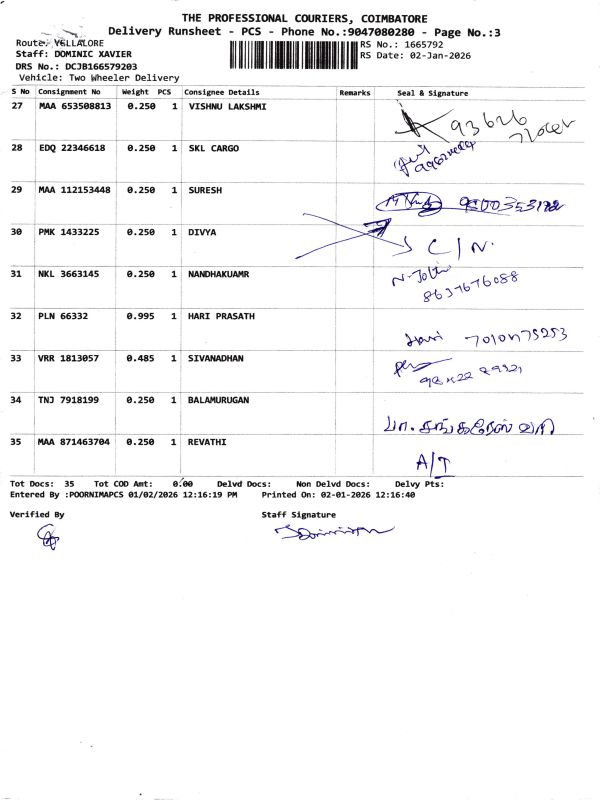 THE PROFESSIONAL COURIERS, COIMBATORE
Delivery Runsheet - PCS - Phone No.:9047080280 - Page No.:3
Route: VELLALORE
Staff: DOMINIC XAVIER
DRS No.: DCJB166579203
Vehicle: Two Wheeler Delivery
RS No.: 1665792
RS Date: 02-Jan-2026
S No Consignment No Weight PCS Consignee Details Remarks Seal & Signature
27 MAA 653508813 0.250 1 VISHNU LAKSHMI
28 EDQ 22346618 0.250 1 SKL CARGO
29 MAA 112153448 0.250 1 SURESH
30 PMK 1433225 0.250 1 DIVYA
31 NKL 3663145 0.250 1 NANDHAKUAMR
8637676088
32 PLN 66332 0.995 1 HARI PRASATH
Hari
33 VRR 1813057 0.485 1 SIVANADHAN
34 TNJ 7918199 0.250 1 BALAMURUGAN
35 MAA 871463704 0.250 1 REVATHI
A/T
Tot Docs: 35 Tot COD Amt: 0.00 Delvd Docs: Non Delvd Docs: Delvy Pts:
Entered By :POORNIMAPCS 01/02/2026 12:16:19 PM Printed On: 02-01-2026 12:16:40
Verified By Staff Signature